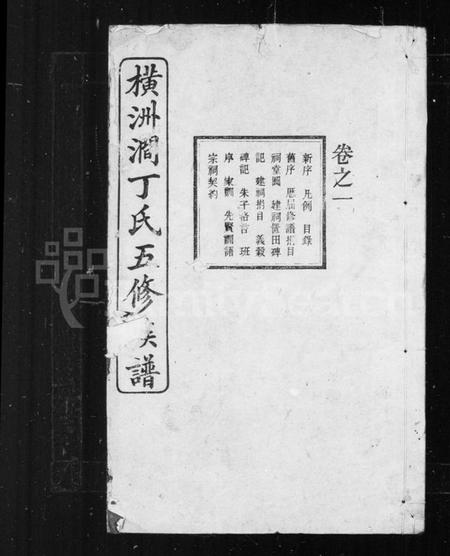 卷之一
新序 凡例 目錄
舊序 歷屆修譜捐目
祠堂圖 建祠置田碑
記 建祠捐目 義穀
碑記 朱子格言 班
序 家訓 先賢訓語
宗祠契約
橫洲澗丁氏五修族譜